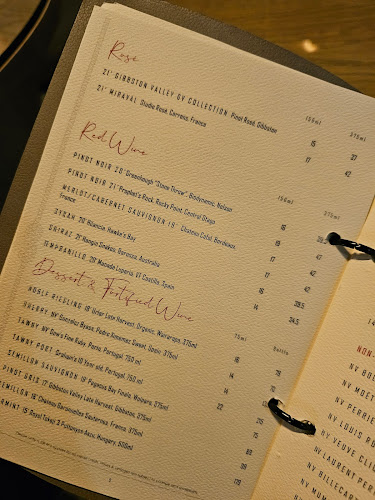 Rosé
150ml 375ml
21' GIBBSTON VALLEY GV COLLECTION Pinot Rosé, Gibbston 15 37
21' MIRAVAL Studio Rosé, Correns, France 17 42
Red Wine
150ml 375ml
PINOT NOIR 20' Greenhough "Stone Throw", Biodynamic, Nelson 16
PINOT NOIR 21' Prophet's Rock, Rocky Point, Central Otago 19 47
MERLOT/CABERNET SAUVIGNON 19' Chateau Colat, Bordeaux, France 17 42
SYRAH 20' Bilancia, Hawke's Bay 17
SHIRAZ 21' Rangio Snakes, Barossa, Australia 16 39.5
TEMPRANILLO, 20' Matsada Loperia, VT Castilla, Spain 14 34.5
Dessert & Fortified Wine
75ml Bottle
NOBLE RIESLING 18' Urlar Late Harvest, Organic, Wairarapa, 375ml 16 78
RUBY NV Gonzalez Byass, Pedro Ximenez Sweet, Spain, 375ml 14 70
TAWNY NV Dow's Fine Ruby, Porto, Portugal, 750 ml 14
TAWNY PORT Graham's 10 Year old, Portugal, 750 ml 22
SEMILLON SAUVIGNON 19' Pegasus Bay Finale, Waipara, 375ml 75
PINOT GRIS 17' Gibbston Valley Late Harvest, Gibbston, 375ml
SEMILLON 16' Chateau Sauternes, France, 375ml
15' Royal Tokaji 5 Puttonyos Aszu, Hungary, 500ml 170
NON-
NV BO
NV MOET
NV PERRIE
NV LOUIS RO
NV VEUVE CLI
NV LAURENT PER
NV BILLECAR